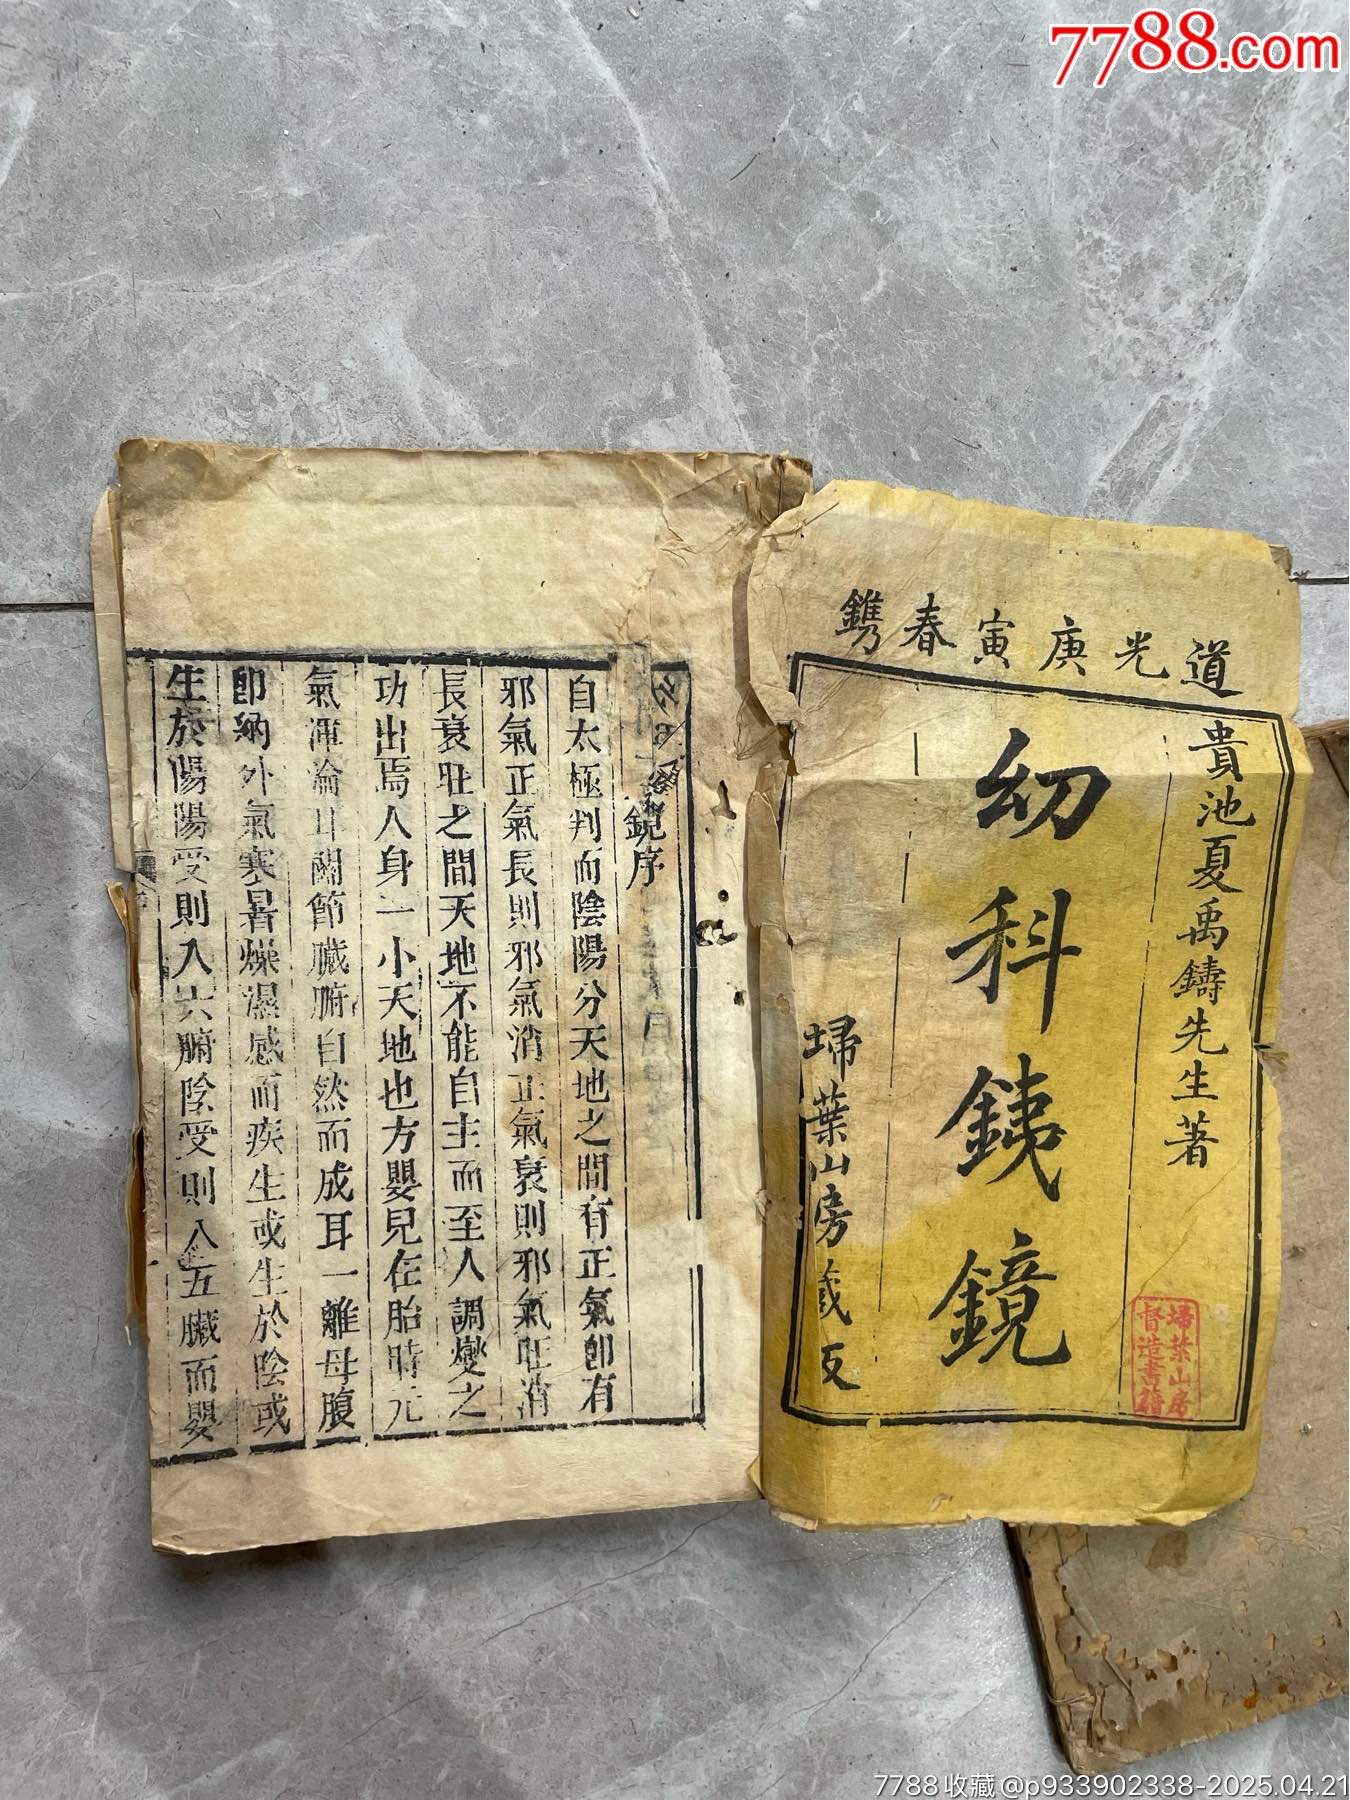 7788.com
道光庚寅春鐫
貴池夏禹鑄先生著
幼科鉄鏡
埽葉山房藏板
埽葉山房
督造書籍
鏡序
自太極判而陰陽分天地之間有正氣卽有
邪氣正氣長則邪氣消正氣衰則邪氣旺消
長衰旺之間天地不能自主而至人調燮之
功出焉人身一小天地也方嬰兒在胎時元
氣渾淪耳關節臟腑自然而成耳一離母腹
卽納外氣寒暑燥濕感而疾生或生於陰或
生於陽陽受則入六腑陰受則入五臟而嬰
7788收藏@p933902338-2025.04.21